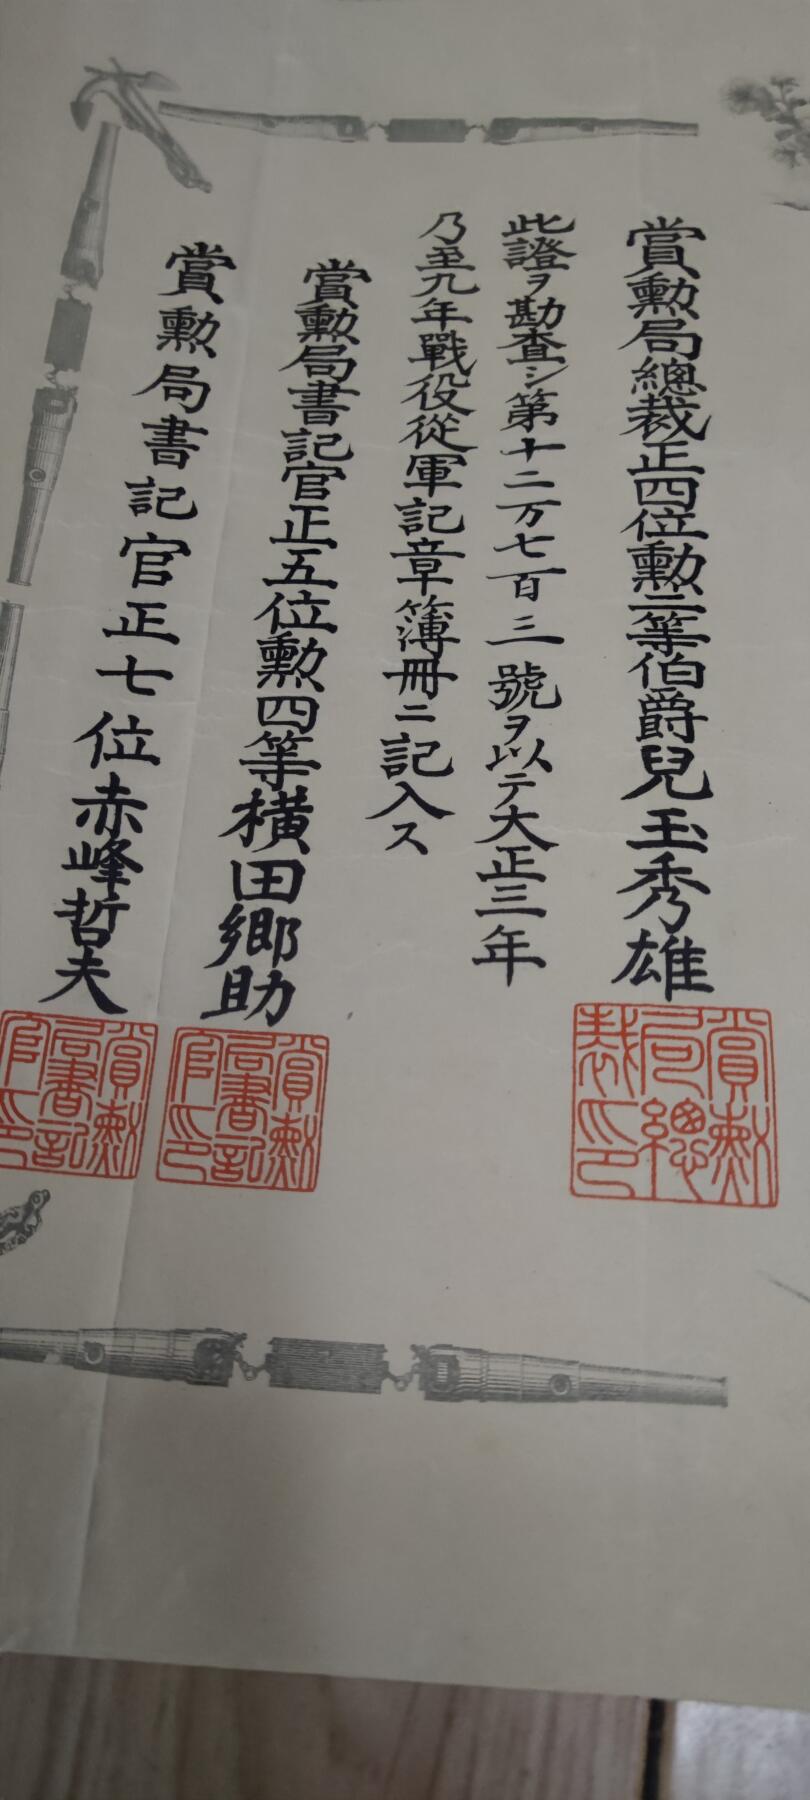 賞勲局總裁正四位勲二等伯爵兒玉秀雄
此證ヲ勘査シ第十二万七百三號ヲ以テ大正三年
乃至九年戰役從軍記章簿冊ニ記入ス
賞勲局書記官正五位勲四等横田郷助
賞勲局書記官正七位赤峰哲夫
賞勲局總裁印
賞勲局書記官印
賞勲局書記官印